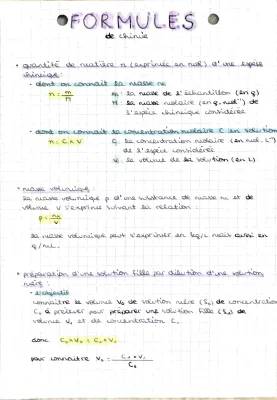 FORMULES
de chimie
• quantité de matière n (exprimée en mol) d'une espèce
chimique :
• dont on connait la masse m
n = m/M
m : la masse de l'échantillon (en g)
M : la masse molaire (en g.mol⁻¹) de
l'espèce chimique considérée
• dont on connait la concentration molaire C en solution
n = C × V
C : la concentration molaire (en mol.L⁻¹)
de l'espèce considérée
V : le volume de la solution (en L)
• masse volumique :
la masse volumique ρ d'une substance de masse m et de
volume V s'exprime suivant la relation :
ρ = m/V
la masse volumique peut s'exprimer en kg/L mais aussi en
g/mL.
• préparation d'une solution fille par dilution d'une solution
mère :
• l'objectif
connaître le volume V₀ de solution mère (S₀) de concentration
C₀ à prélever pour préparer une solution fille (S₁) de
volume V₁ et de concentration C₁
donc C₀ × V₀ = C₁ × V₁
pour connaitre V₀ = C₁ × V₁ / C₀